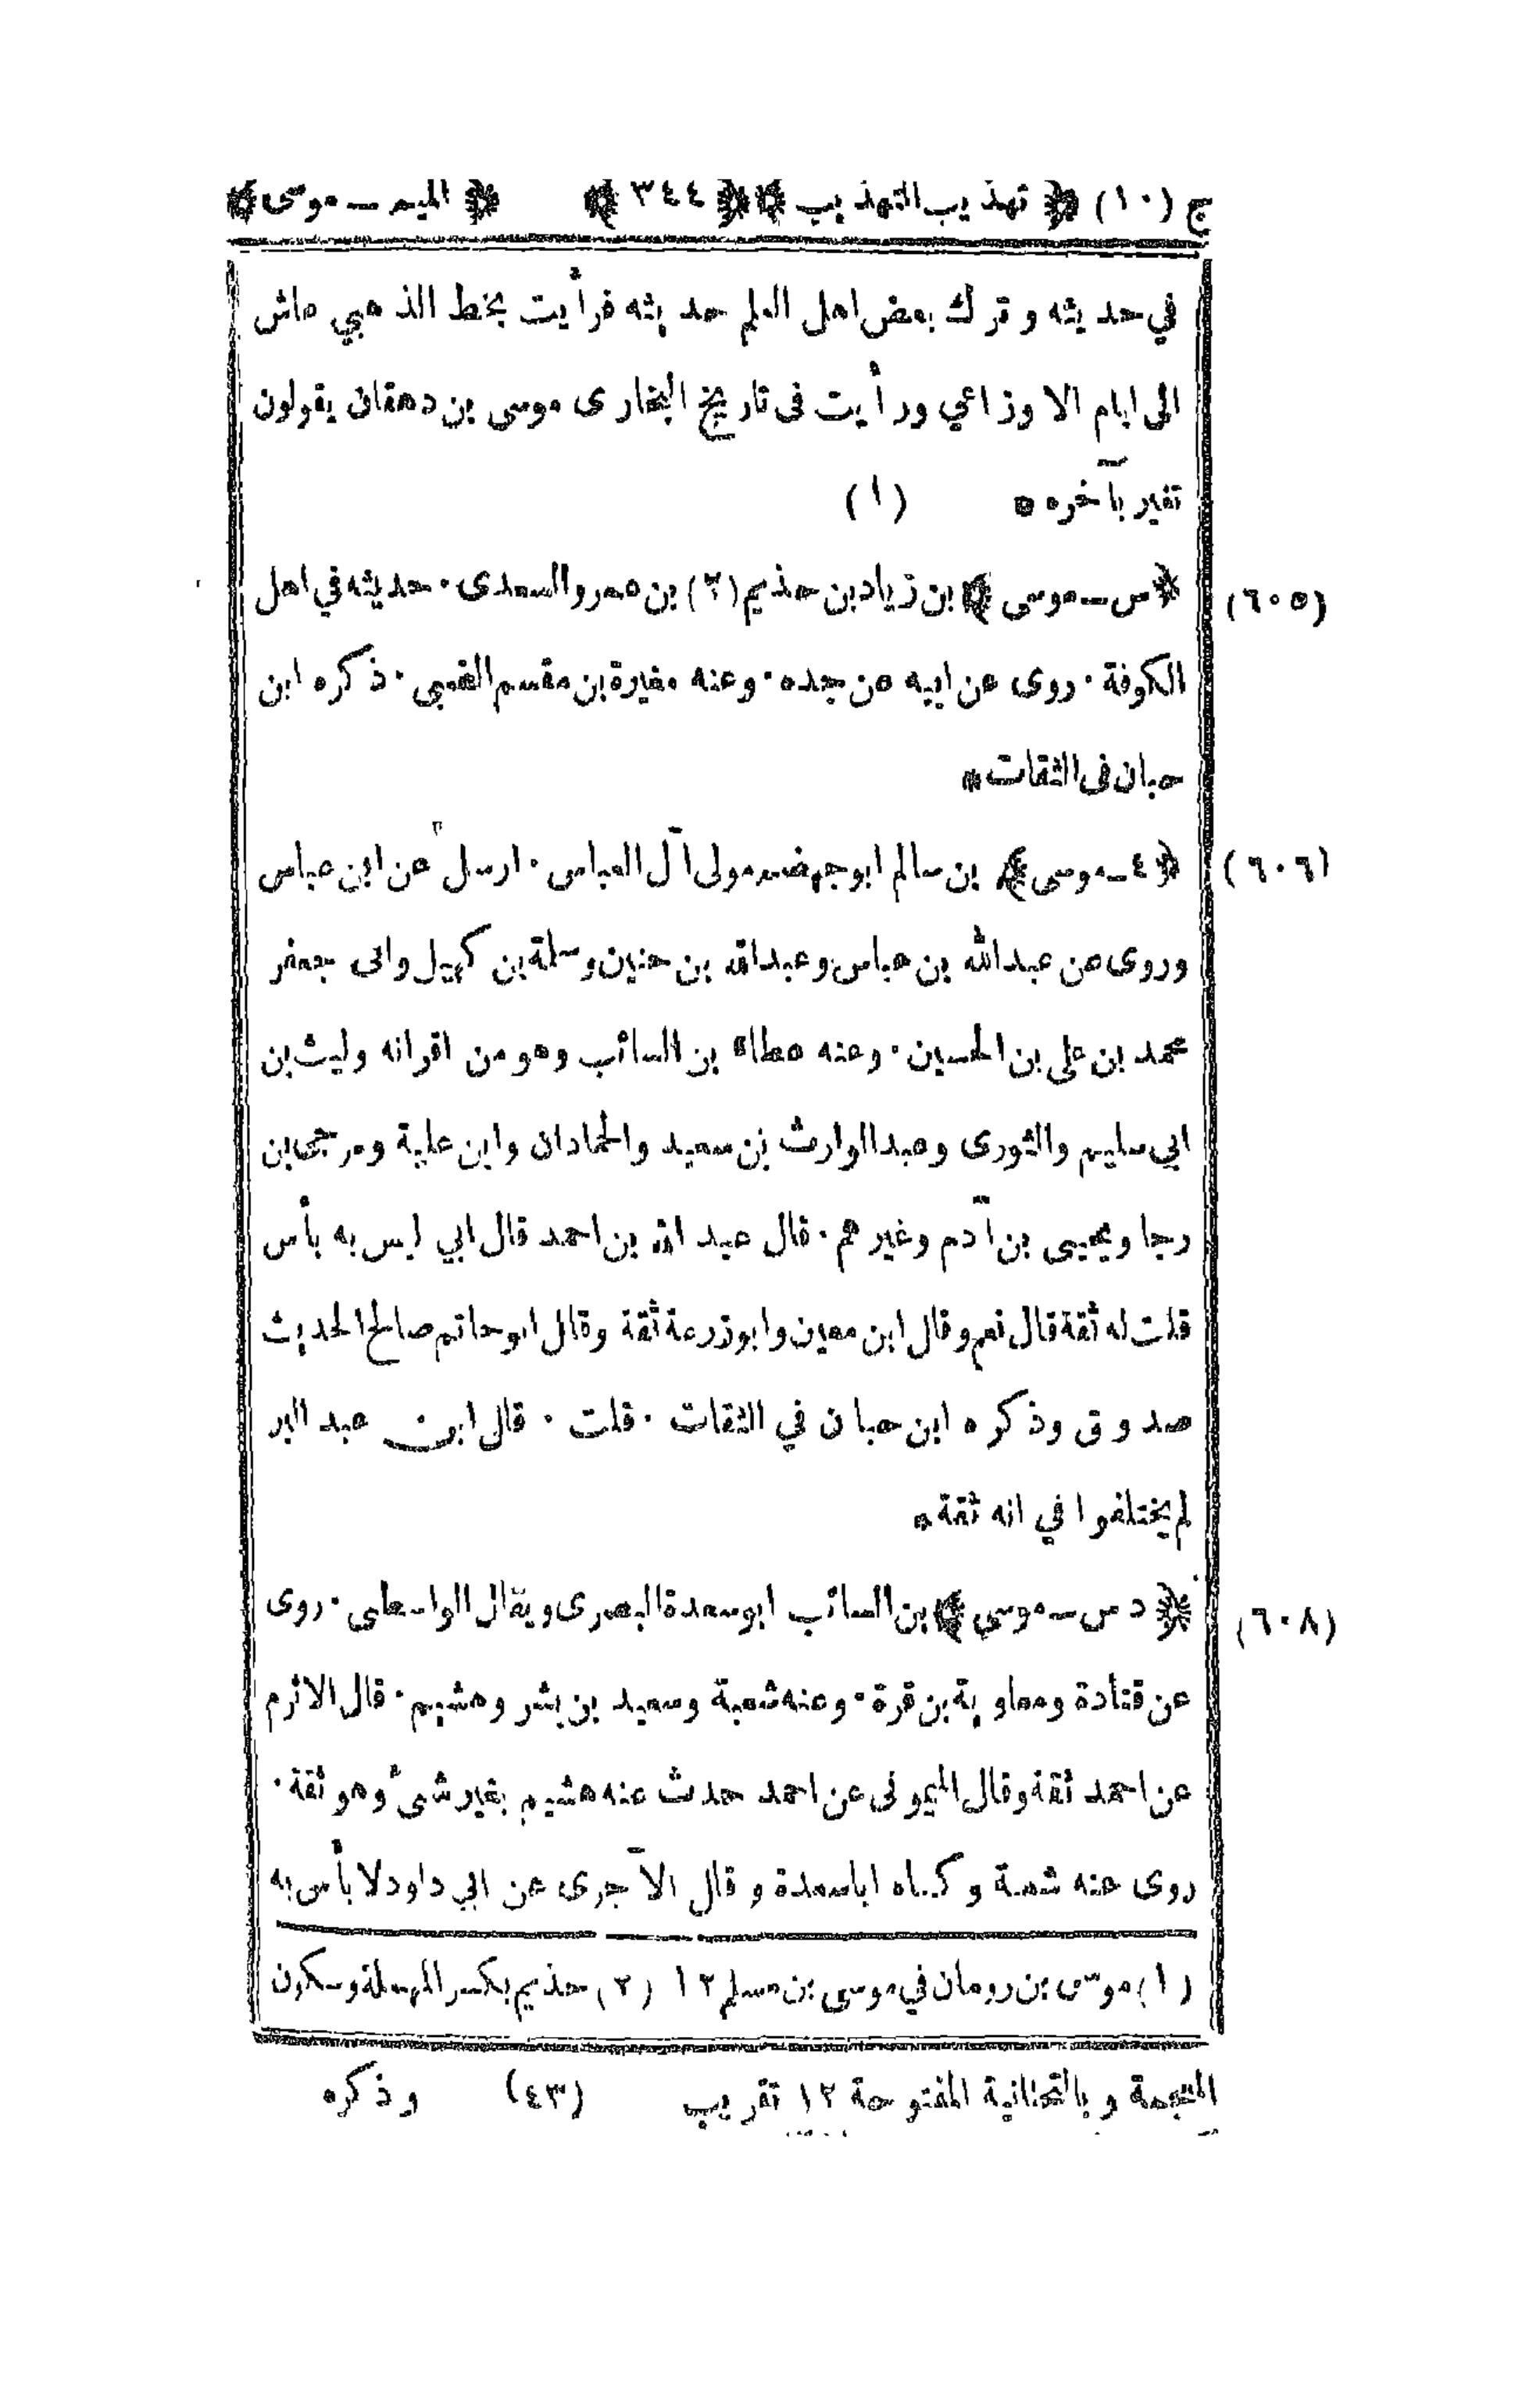 ج (١٠) ﴿ تهذيب التهذيب ﴾ ﴿ ٣٤٤ ﴾ ﴿ الميم ــ موسى ﴾
في حديثه وترك بعض اهل العلم حديثه قرأيت بخط الذهبي عاش
الى ايام الاوزاعي ورأيت فى تاريخ البخارى موسى بن دهقان يقولون
تغير بآخره * (١)
(٦٠٥) ﴿ س ــ موسى ﴾ بن زياد بن حذيم (٢) بن عمرو السعدى · حديثه في اهل
الكوفة · روى عن ابيه عن جده · وعنه مغيرة بن مقسم الضبى · ذكره ابن
حبان فى الثقات *
(٦٠٦) ﴿ ٤ ــ موسى ﴾ بن سالم ابو جهضم مولى آل العباس · ارسل عن ابن عباس
وروى عن عبد الله بن عباس وعبد الله بن حنين وسلمة بن كهيل وابى جعفر
محمد بن على بن الحسين · وعنه عطاء بن السائب وهو من اقرانه وليث بن
ابي سليم والثورى وعبد الوارث بن سعيد والحمادان وابن علية ومرجى بن
رجا ويحيى بن آدم وغيرهم · قال عبد الله بن احمد قال ابي ليس به بأس
قلت له ثقة قال نعم وقال ابن معين وابو زرعة ثقة وقال ابو حاتم صالح الحديث
صدوق وذكره ابن حبان في الثقات · قلت · قال ابن عبد البر
لم يختلفوا في انه ثقة *
(٦٠٨) ﴿ د س ــ موسى ﴾ بن السائب ابو سعدة البصرى ويقال الواسطى · روى
عن قتادة ومعاوية بن قرة · وعنه شعبة وسعيد بن بشر وهشيم · قال الاثرم
عن احمد ثقة وقال الميمونى عن احمد حدث عنه هشيم بغير شئ وهو ثقة ·
روى عنه شعبة وكناه اباسعدة وقال الآجرى عن ابي داود لا بأس به
(١) موسى بن رومان في موسى بن مسلم ١٢ (٢) حذيم بكسر المهملة وسكون
المعجمة وبالتحتانية المفتوحة ١٢ تقريب (٤٣) وذكره